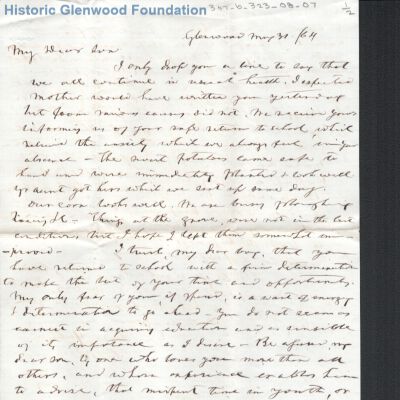 Historic Glenwood Foundation
347-b-323-08-07
1/2
Glenwood May 31 /64
My Dear Son
I only drop you a line to say that
we all continue in usual health. I expected
Mother would have written you yesterday
but from various causes did not. We received yours
informing us of your safe return to school, which
relieved the anxiety which we always feel in your
absence - The sweet potatoes came safe to
hand and were immediately planted & look well
aunt got hers which we sent up same day.
Our corn looks well. We are busy ploughing
& things at the Grove, were not in the best
condition but I hope I left them somewhat im
-proved - I trust, my dear boy, that you
have returned to school with a firm determination
to make the best of your time and opportunity.
My only fear of you, if spared, is a want of energy
& determination to go ahead - You do not seem as
earnest in acquiring education and as sensible
of its importance as I desire - Be assured my
dear son, by one who loves you more than all
others, and whose experience enables him
to advise, that mispent time in youth, or